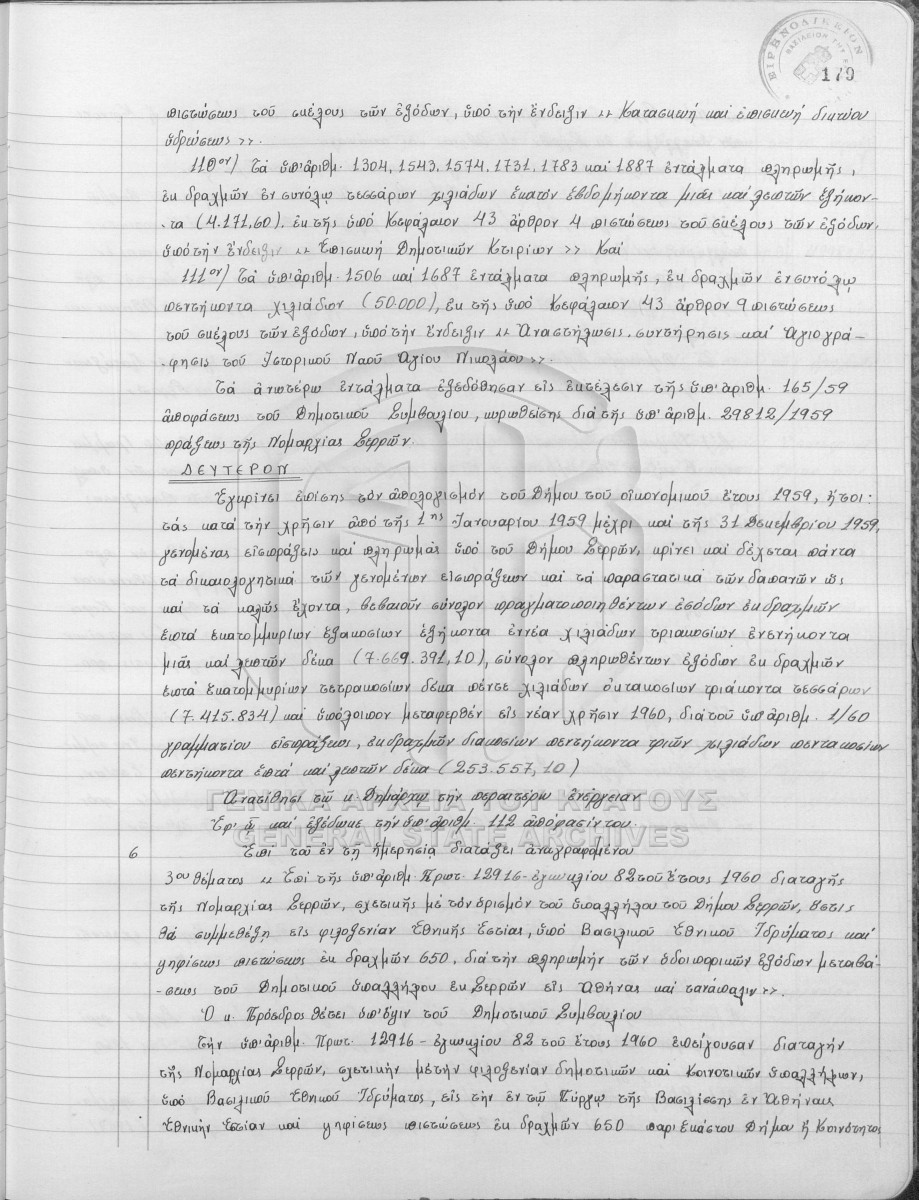 ΕΙΡΗΝΟΔΙΚΕΙΟΝ
179
πιστώσεως τοῦ σκέλους τῶν ἐξόδων, ὑπό τήν ἔνδειξιν « Κατασκευή καί ἐπισκευή δικτύου
ὑδρεύσεως ».
110ον) Τά ὑπ' ἀριθμ. 1304, 1543, 1574, 1731, 1783 καί 1887 ἐντάλματα πληρωμῆς,
ἐκ δραχμῶν ἐν συνόλῳ τεσσάρων χιλιάδων ἑκατόν ἑβδομήκοντα μιᾶς καί λεπτῶν ἑξήκον-
-τα (4.171,60), ἐκ τῆς ὑπό Κεφάλαιον 43 ἄρθρον 4 πιστώσεως τοῦ σκέλους τῶν ἐξόδων,
ὑπό τήν ἔνδειξιν « Ἐπισκευή Δημοτικῶν Κτιρίων » Καί
111ον) Τά ὑπ' ἀριθμ. 1506 καί 1687 ἐντάλματα πληρωμῆς, ἐκ δραχμῶν ἐν συνόλῳ
πεντήκοντα χιλιάδων (50.000), ἐκ τῆς ὑπό Κεφάλαιον 43 ἄρθρον 9 πιστώσεως
τοῦ σκέλους τῶν ἐξόδων, ὑπό τήν ἔνδειξιν « Ἀναστήλωσις, συντήρησις καί Ἁγιογρά-
-φησις τοῦ Ἱστορικοῦ Ναοῦ Ἁγίου Νικολάου ».
Τά ἀνωτέρω ἐντάλματα ἐξεδόθησαν εἰς ἐκτέλεσιν τῆς ὑπ' ἀριθμ. 165/59
ἀποφάσεως τοῦ Δημοτικοῦ Συμβουλίου, κυρωθείσης διά τῆς ὑπ' ἀριθμ. 29812/1959
πράξεως τῆς Νομαρχίας Σερρῶν.
ΔΕΥΤΕΡΟΝ
Ἐγκρίνει ἐπίσης τόν ἀπολογισμόν τοῦ Δήμου τοῦ οἰκονομικοῦ ἔτους 1959, ἤτοι:
τάς κατά τήν χρῆσιν ἀπό τῆς 1ης Ἰανουαρίου 1959 μέχρι καί τῆς 31 Δεκεμβρίου 1959,
γενομένας εἰσπράξεις καί πληρωμάς ὑπό τοῦ Δήμου Σερρῶν, κρίνει καί δέχεται πάντα
τά δικαιολογητικά τῶν γενομένων εἰσπράξεων καί τά παραστατικά τῶν δαπανῶν ὡς
καί τά καλῶς ἔχοντα, βεβαιοῦν σύνολον πραγματοποιηθέντων ἐσόδων ἐκ δραχμῶν
ἑπτά ἑκατομμυρίων ἑξακοσίων ἑξήκοντα ἐννέα χιλιάδων τριακοσίων ἐνενήκοντα
μιᾶς καί λεπτῶν δέκα (7.669.391,10), σύνολον πληρωθέντων ἐξόδων ἐκ δραχμῶν
ἑπτά ἑκατομμυρίων τετρακοσίων δέκα πέντε χιλιάδων ὀκτακοσίων τριάκοντα τεσσάρων
(7.415.834) καί ὑπόλοιπον μεταφερθέν εἰς νέαν χρῆσιν 1960, διά τοῦ ὑπ' ἀριθμ. 1/60
γραμματίου εἰσπράξεως, ἐκ δραχμῶν διακοσίων πεντήκοντα τριῶν χιλιάδων πεντακοσίων
πεντήκοντα ἑπτά καί λεπτῶν δέκα (253.557,10)
Ἀνατίθησι τῷ κ. Δημάρχῳ τήν περαιτέρω ἐνέργειαν
Ἐφ' ᾧ καί ἐξέδωκε τήν ὑπ' ἀριθμ. 112 ἀπόφασίν του.
ΓΕΝΙΚΑ ΑΡΧΕΙΑ ΤΟΥ ΚΡΑΤΟΥΣ
GENERAL STATE ARCHIVES
6 Ἐπί τοῦ ἐν τῇ ἡμερησίᾳ διατάξει ἀναγραφομένου
3ου θέματος « Ἐπί τῆς ὑπ' ἀριθμ. Πρωτ. 12916 - ἐγκυκλίου 82 τοῦ ἔτους 1960 διαταγῆς
τῆς Νομαρχίας Σερρῶν, σχετικῆς μέ τόν ὁρισμόν τοῦ ὑπαλλήλου τοῦ Δήμου Σερρῶν, ὅστις
θά συμμεθέξῃ εἰς φιλοξενίαν Ἐθνικῆς Ἑστίας, ὑπό Βασιλικοῦ Ἐθνικοῦ Ἱδρύματος καί
ψηφίσεως πιστώσεως ἐκ δραχμῶν 650, διά τήν πληρωμήν τῶν ὁδοιπορικῶν ἐξόδων μεταβά-
-σεως τοῦ Δημοτικοῦ ὑπαλλήλου ἐκ Σερρῶν εἰς Ἀθήνας καί τἀνάπαλιν ».
Ὁ κ. Πρόεδρος θέτει ὑπ' ὄψιν τοῦ Δημοτικοῦ Συμβουλίου
Τήν ὑπ' ἀριθμ. Πρωτ. 12916 - ἐγκυκλίου 82 τοῦ ἔτους 1960 ἐπείγουσαν διαταγήν
τῆς Νομαρχίας Σερρῶν, σχετικήν μέ τήν φιλοξενίαν δημοτικῶν καί Κοινοτικῶν ὑπαλλήλων,
ὑπό Βασιλικοῦ Ἐθνικοῦ Ἱδρύματος, εἰς τήν ἐν τῷ Πύργῳ τῆς Βασιλίσσης ἐν Ἀθήναις
Ἐθνικήν Ἑστίαν καί ψηφίσεως πιστώσεως ἐκ δραχμῶν 650 παρ' ἑκάστου Δήμου ἤ Κοινότητος